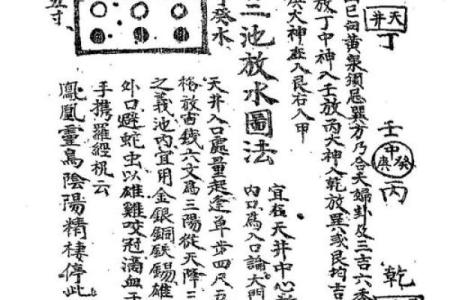 天井
丁
壬
中
癸庚
丙
乾
巳向黃泉須忌巽方乃合夫婦卦及三吉六秀
放丁中神入壬放丙大神入乾放巽或艮均吉
庚大神在入艮右入甲
宜在天井中心
內口為入口論大門
三池放水圖法
癸水
天井入口處量起逢單步四尺五
格放古錢六文為三陽從天降三
之義池內宜用金銀銅鉄錫雄
外口避蛇虫以雄雞咬冠滴血于
手携羅經机云
鳳凰靈鳥陰陽精棲停此
五寸